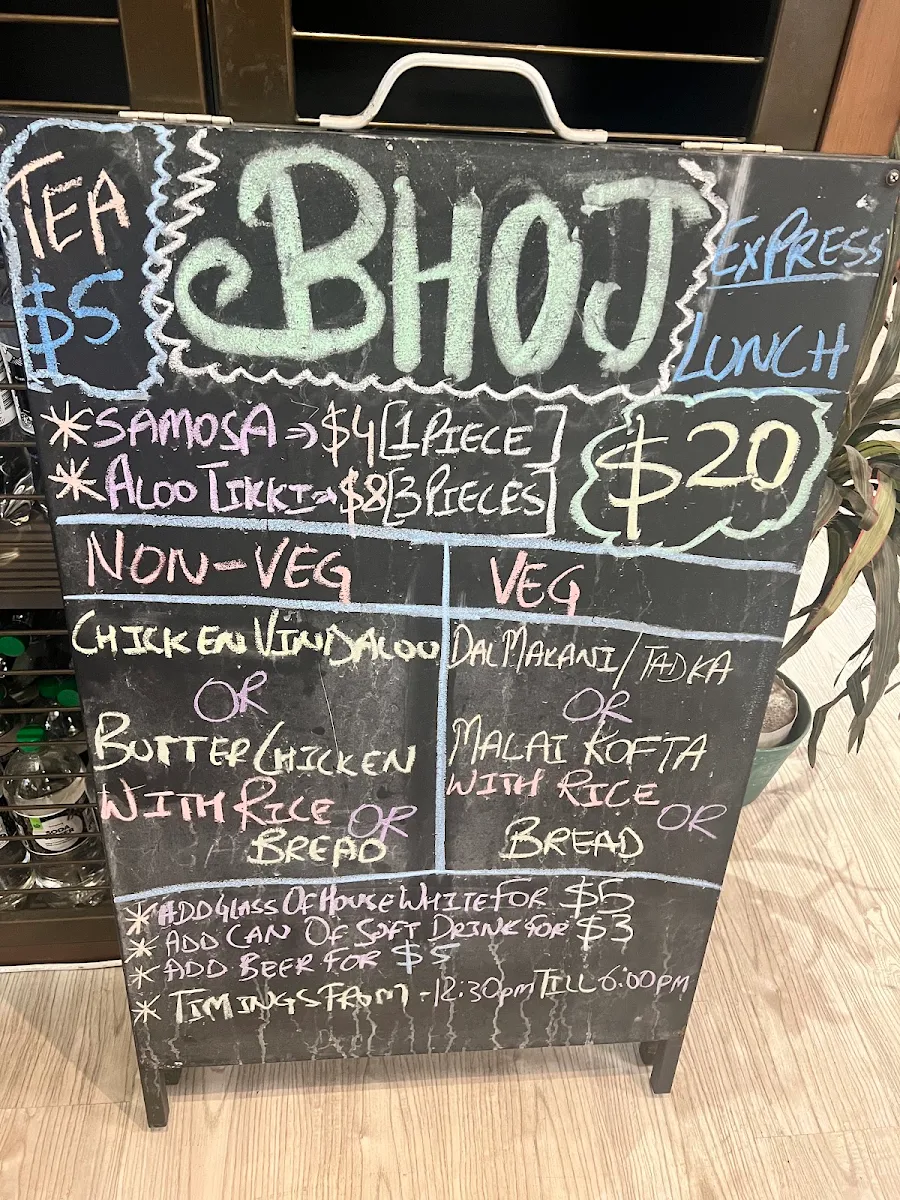 TEA
$5
BHOJ
EXPRESS
LUNCH
$20
* SAMOSA → $4 [1 PIECE]
* ALOO TIKKI → $8 [3 PIECES]
NON-VEG
CHICKEN VINDALOO
OR
BUTTER CHICKEN
WITH RICE OR
BREAD
VEG
DAL MAKANI / TADKA
OR
MALAI KOFTA
WITH RICE OR
BREAD
* ADD GLASS OF HOUSE WHITE FOR $5
* ADD CAN OF SOFT DRINK FOR $3
* ADD BEER FOR $5
* TIMINGS FROM - 12:30pm TILL 6:00PM